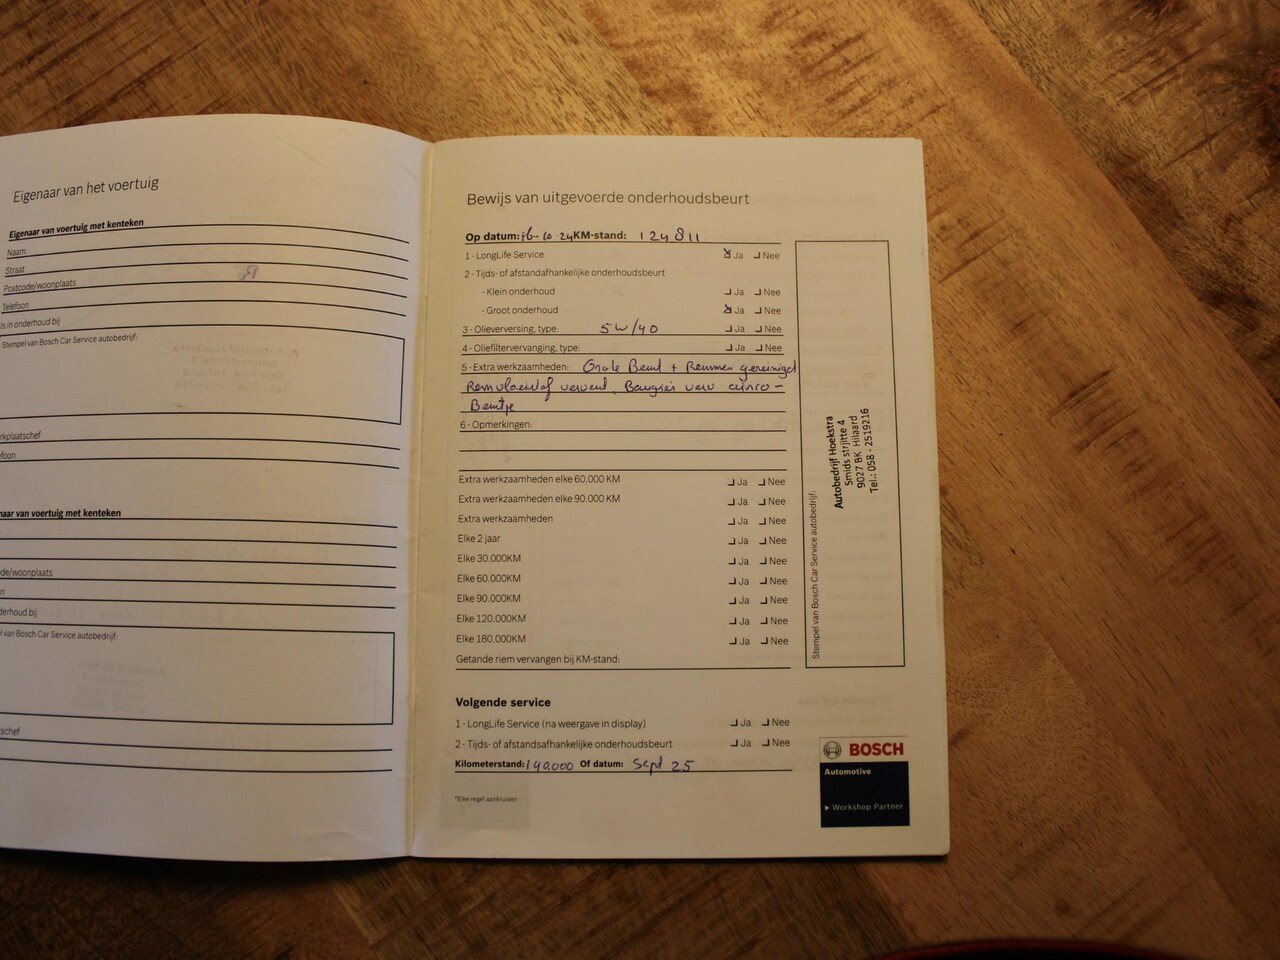 Eigenaar van het voertuig
Eigenaar van voertuig met kenteken
Naam
Straat
Postcode/woonplaats
Telefoon
ls in onderhoud bij
Stempel van Bosch Car Service autobedrijf:
rkplaatschef
foon
naar van voertuig met kenteken
de/woonplaats
n
derhoud bij
el van Bosch Car Service autobedrijf:
tschef
Bewijs van uitgevoerde onderhoudsbeurt
Op datum: 16-10-24 KM-stand: 124811
1 - LongLife Service Ja Nee
2 - Tijds- of afstandafhankelijke onderhoudsbeurt
- Klein onderhoud Ja Nee
- Groot onderhoud Ja Nee
3 - Olieverversing, type: 5W/40 Ja Nee
4 - Oliefiltervervanging, type: Ja Nee
5 - Extra werkzaamheden: Beurt + Remmen gereinigd
Beurtje
6 - Opmerkingen:
Extra werkzaamheden elke 60.000 KM Ja Nee
Extra werkzaamheden elke 90.000 KM Ja Nee
Extra werkzaamheden Ja Nee
Elke 2 jaar Ja Nee
Elke 30.000KM Ja Nee
Elke 60.000KM Ja Nee
Elke 90.000KM Ja Nee
Elke 120.000KM Ja Nee
Elke 180.000KM Ja Nee
Getande riem vervangen bij KM-stand:
Stempel van Bosch Car Service autobedrijf:
Autobedrijf Hoekstra
Smids strjitte 4
9027 BK Hilaard
Tel.: 058 - 2519216
Volgende service
1 - LongLife Service (na weergave in display) Ja Nee
2 - Tijds- of afstandsafhankelijke onderhoudsbeurt Ja Nee
Kilometerstand: 140000 Of datum: Sept 25
*Elke regel aankruisen
BOSCH
Automotive
Workshop Partner